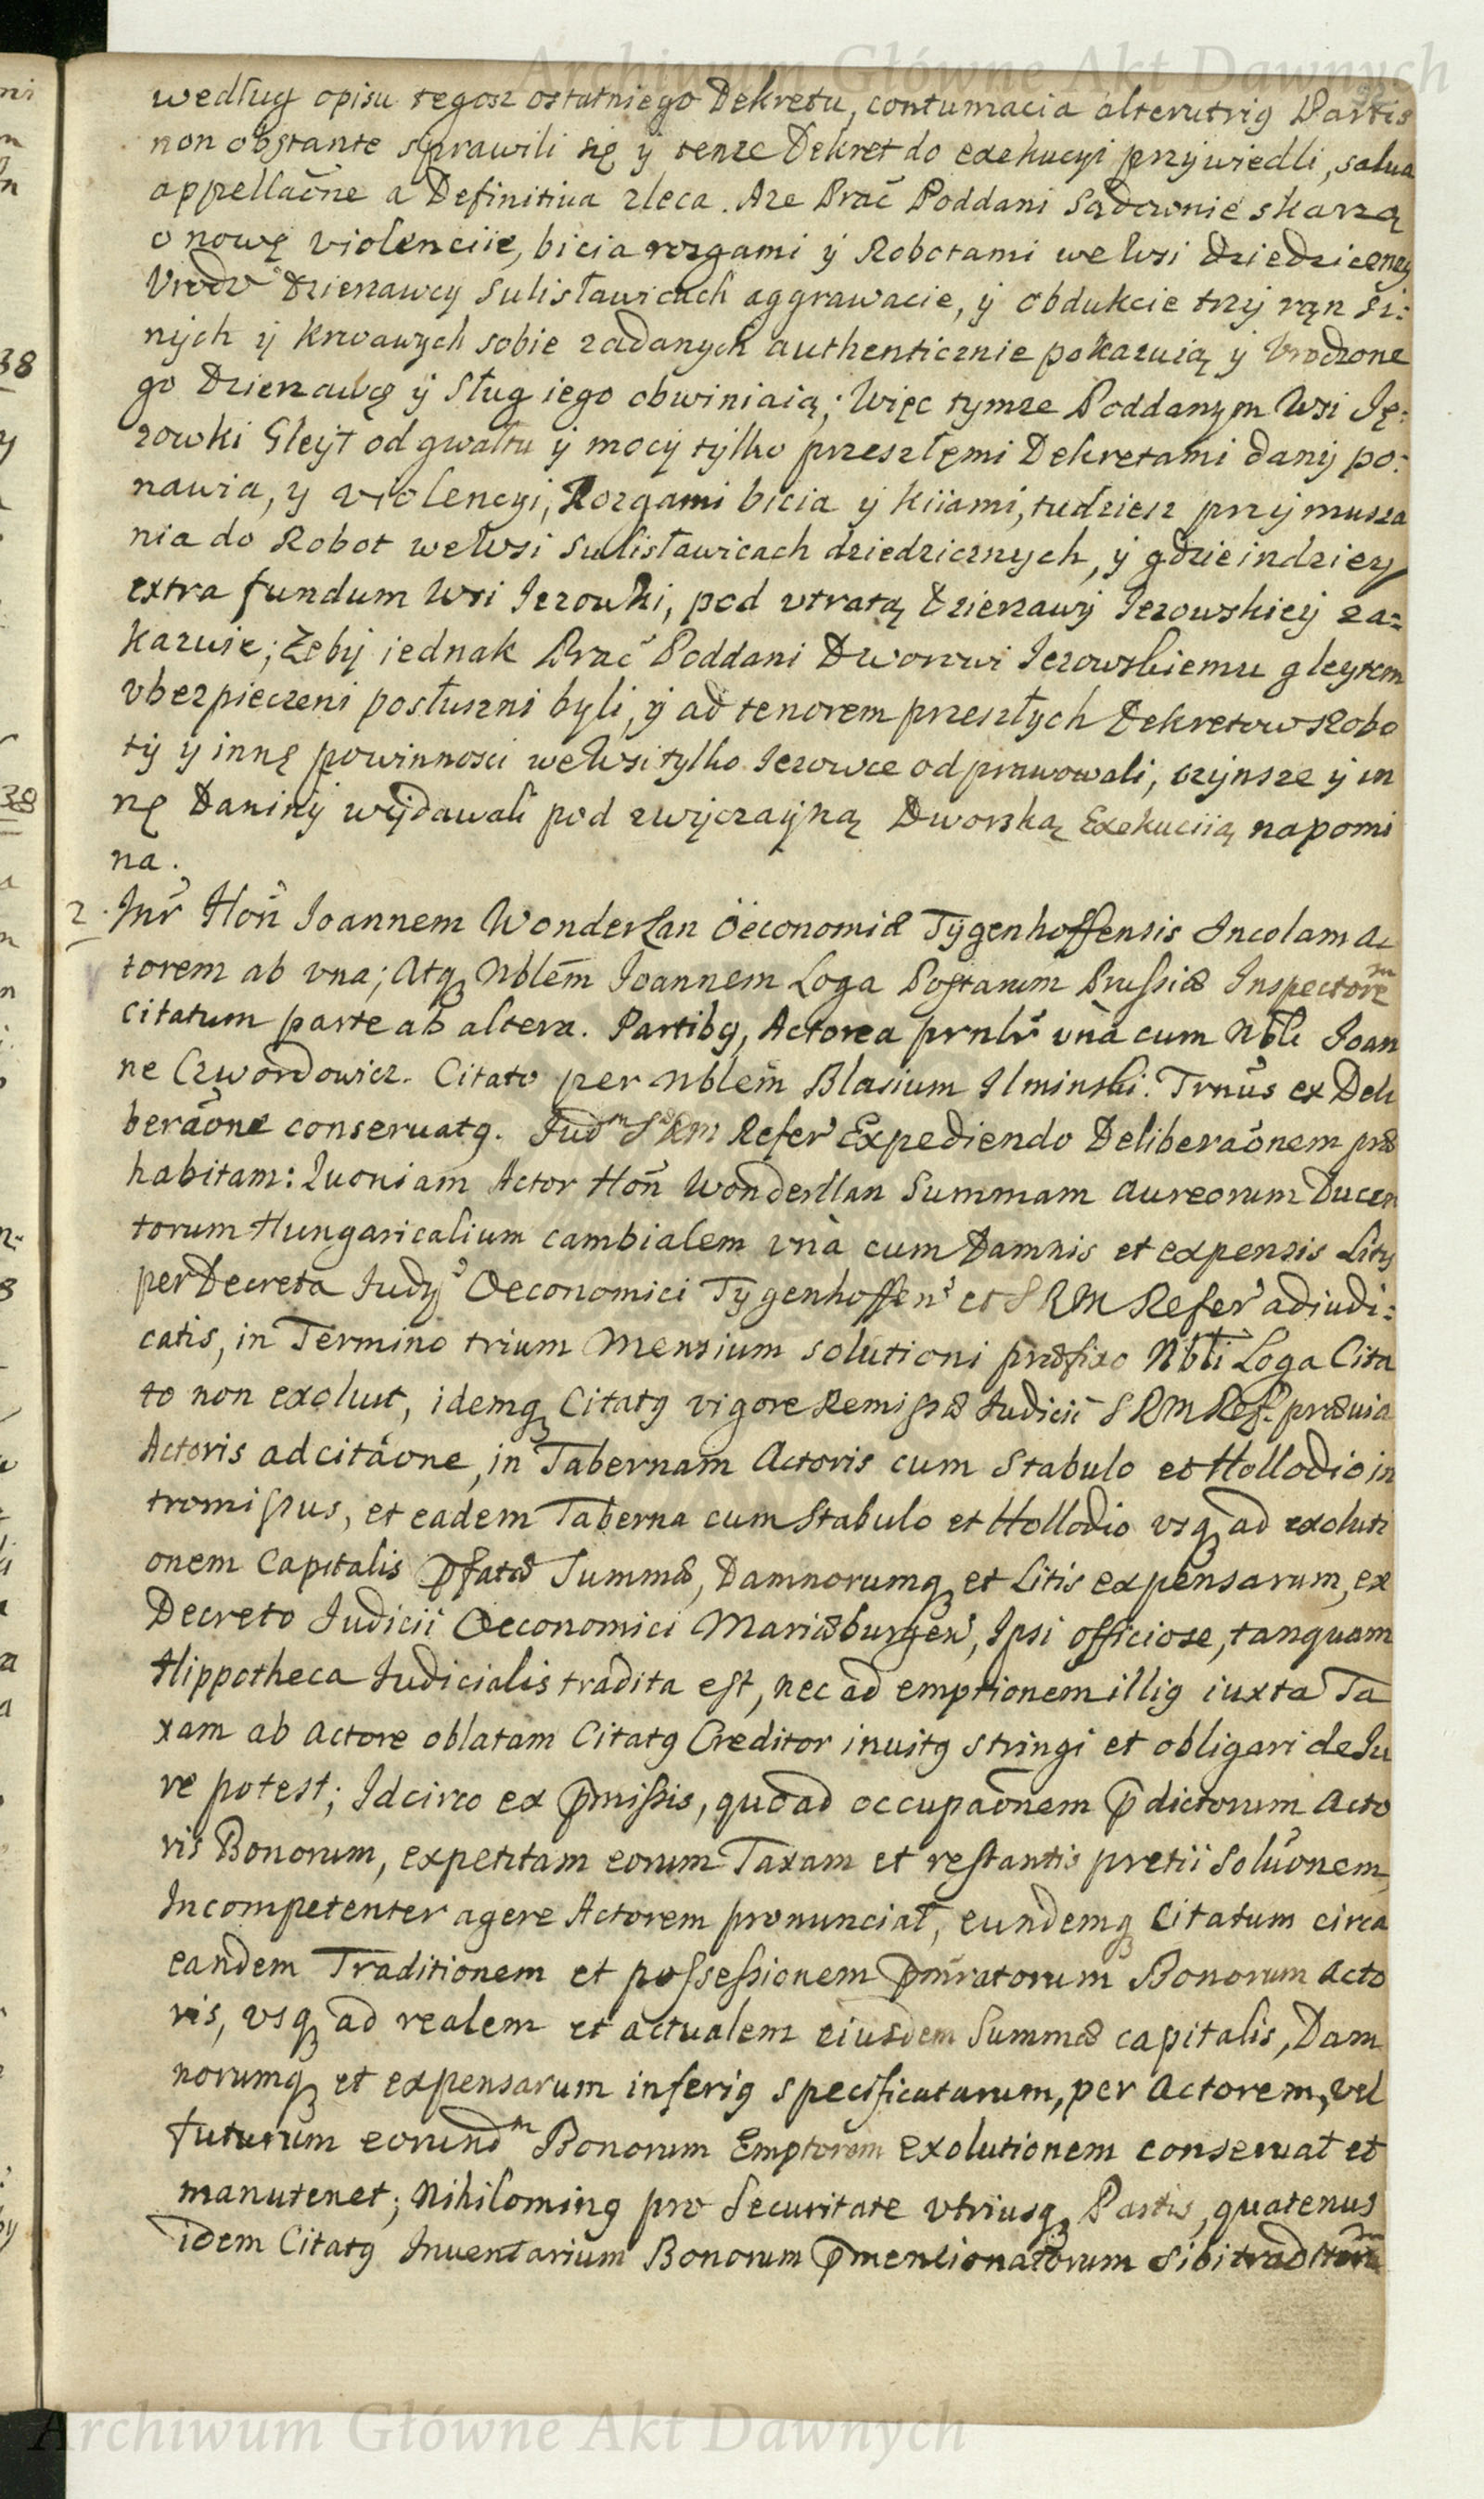 Archiwum Główne Akt Dawnych
według opisu tegosz ostatniego Dekretu, contumacia alterutrig Partis
non obstante sprawili się ÿ tenze Dekret do exekucyi przÿwiedli, salua
appellaõne a Definitiua zleca. Aze Prać Poddani Sądownie skarzą
o nowę violenciie, bicia rozgami ÿ Robotami we Wsi Dziedziczney
Vrodz° Dzierzawcy Sulisławicach aggrawacie, ÿ obdukcie trzÿ ręn si:
nÿch ÿ krwawÿch sobie zadanych authenticznie pokazuią ÿ Vrodzone
go Dzierzawcę ÿ Sług iego obwiniaią; Więc tymze Poddanym Wsi Ję:
zowki Gleÿt od gwałtu ÿ mocÿ tÿlko przeszłęmi Dekretami danÿ po:
nawia, y violencyi, Rozgami bicia ÿ kiiami, tudziesz przÿmusza
nia do Robot we Wsi Sulisławicach dziedzicznych, ÿ gdzieindziey
extra fundum Wsi Jezowki, pod vtratą Dzierzawÿ Jezowskieÿ za=
kazuie; Zebÿ iednak Prać Poddani Dworowi Jezowskiemu gleytem
vbezpieczeni posłuszni byli, ÿ ad tenorem przeszłych Dekretow Robo
tÿ ÿ innę powinnosci we Wsi tylko Jezowce odprawowali, czÿnsze ÿ in
nę Daninÿ wÿdawali pod zwÿczaÿną Dworską Exekuciią napomi
na.
2. Inr̃ Hoñ Joannem Wonderlan Öeconomiæ Tÿgenhoffensis Incolam Ac
torem ab vna; Atq Nblẽm Joannem Loga Postarum Prussiæ Inspectorem
citatum parte ab altera. Partibg, Actorea prnlr̃ vnà cum Nbli Joan
ne Czwordowicz. Citato per Nblẽm Blasium Ilminski. Trnũs ex Deli
beraõne conseruatg. Judm SRM Refer Expediendo Deliberaõnem præ
habitam: Quoniam Actor Hoñ Wonderllan Summam Aureorum Ducen
torum Hungaricalium cambialem vnà cum Damnis et expensis Litis
per Decreta Judÿ Oeconomici Tÿgenhoffens et SRM Refer adiudi:
catis, in Termino trium Mensium solutioni præfixo Nbli Loga Cita
to non exoluit, idemq Citatg vigore Remissæ Judicii SRM Ref. præuia
Actoris adcitaõne, in Tabernam Actoris cum Stabulo et Hollodio in
tromissus, et eadem Taberna cum Stabulo et Hollodio vsq ad exoluti
onem Capitalis p̃fatæ Summæ, Damnorumq et Litis expensarum, ex
Decreto Judicii Oeconomici Mariæburgen, Ipsi officiose, tanquam
Hippotheca Judicialis tradita est, nec ad emptionem illig iuxta Ta
xam ab Actore oblatam Citatg Creditor inuitg stringi et obligari de Ju
re potest; Idcirco ex p̃missis, quoad occupaõnem p̃dictorum Acto
ris Bonorum, expetitam eorum Taxam et restantis pretii Soluõnem
Incompetenter agere Actorem pronunciat, eundemq Citatum circa
eandem Traditionem et possessionem p̃mr̃atorum Bonorum Acto
ris, vsq ad realem et actualem eiusdem Summæ capitalis, Dam
norumq et expensarum inferig specificatarum, per Actorem, vel
futurum eorundm Bonorum Emptorem exolutionem conseruat et
manutenet; Nihiloming pro Securitate vtriusq Partis, quatenus
idem Citatg Inuentarium Bonorum p̃mentionatorum sibi traditorum
Archiwum Główne Akt Dawnych